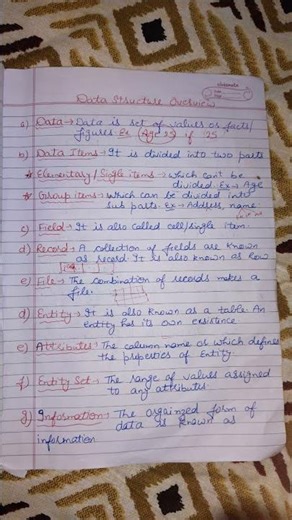 Data Structure Overview
a) Data → Data is set of values or facts/
figures. Ex. (Age 25) if 25
b) Data Items → It is divided into two parts
* Elementary/Single items → which can't be
divided. Ex → Age
* Group items → which can be divided into
sub parts. Ex → Address, name
c) Field → It is also called cell/single item.
d) Record → A collection of fields are known
as record. It is also known as Row
e) File → The combination of records makes a
file.
d) Entity → It is also known as a table. An
entity has its own existence
e) Attributes → The column name or which defines
the properties of Entity.
f) Entity Set → The range of values assigned
to any attributes
g) Information → The orgainzed form of
data is known as
information